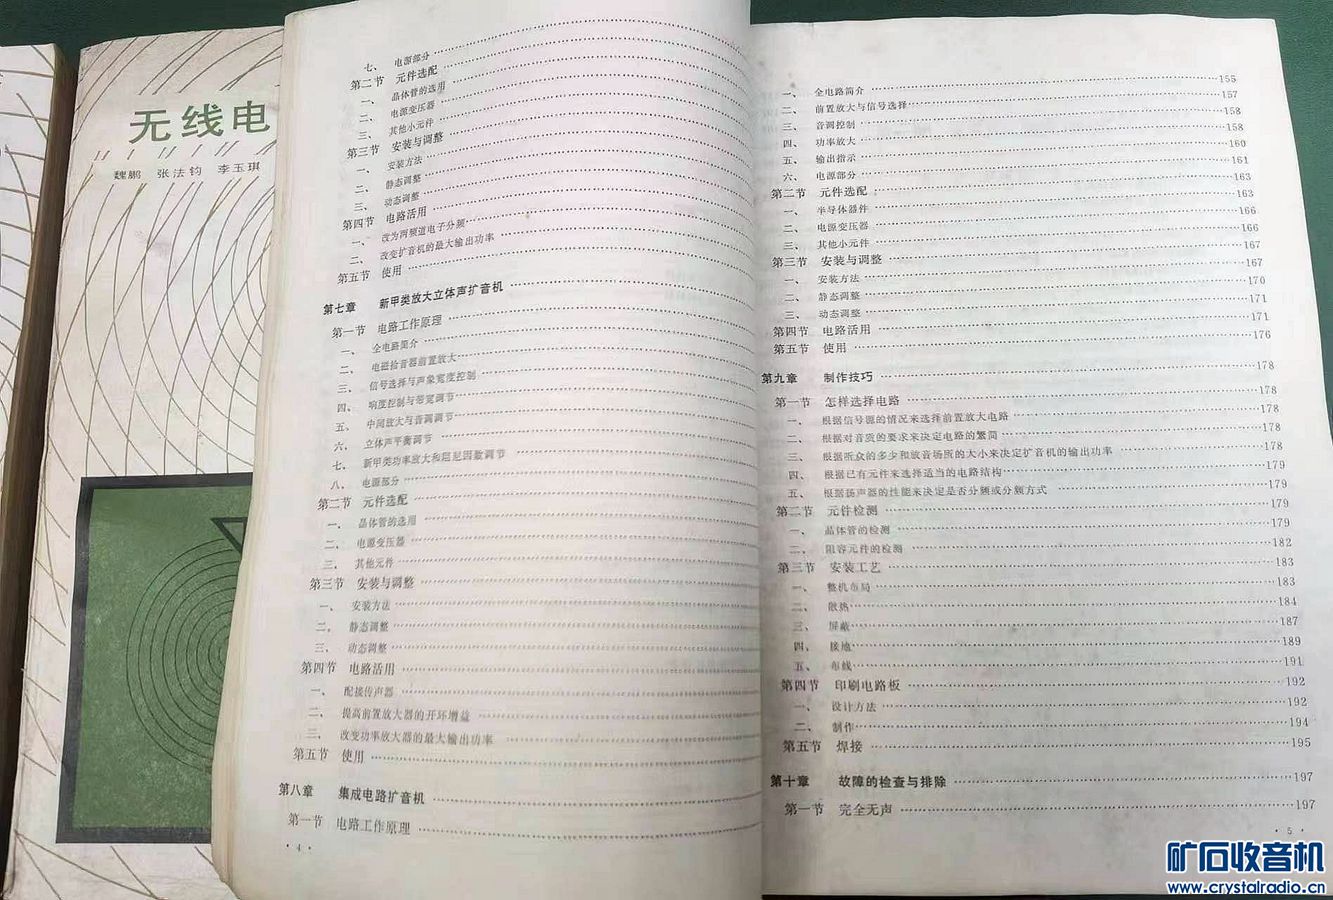 无线电
魏鹏 张法钧 李玉琪
七、 电源部分
第二节 元件选配
一、 晶体管的选用
二、 电源变压器
三、 其他小元件
第三节 安装与调整
一、 安装方法
二、 静态调整
三、 动态调整
第四节 电路活用
一、 改为两频道电子分频
二、 改变扩音机的最大输出功率
第五节 使用
第七章 新甲类放大立体声扩音机
第一节 电路工作原理
一、 全电路简介
二、 电磁拾音器前置放大
三、 信号选择与声象宽度控制
四、 响度控制与带宽调节
五、 中间放大与音调调节
六、 立体声平衡调节
七、 新甲类功率放大和阻尼因数调节
八、 电源部分
第二节 元件选配
一、 晶体管的选用
二、 电源变压器
三、 其他元件
第三节 安装与调整
一、 安装方法
二、 静态调整
三、 动态调整
第四节 电路活用
一、 配接传声器
二、 提高前置放大器的开环增益
三、 改变功率放大器的最大输出功率
第五节 使用
第八章 集成电路扩音机
第一节 电路工作原理
· 4 ·
155
一、 全电路简介 157
二、 前置放大与信号选择 158
三、 音调控制 158
四、 功率放大 160
五、 输出指示 161
六、 电源部分 163
第二节 元件选配 163
一、 半导体器件 166
二、 电源变压器 166
三、 其他小元件 167
第三节 安装与调整 167
一、 安装方法 170
二、 静态调整 171
三、 动态调整 171
第四节 电路活用 176
第五节 使用
第九章 制作技巧 178
第一节 怎样选择电路 178
一、 根据信号源的情况来选择前置放大电路 178
二、 根据对音质的要求来决定电路的繁简 178
三、 根据听众的多少和放音场所的大小来决定扩音机的输出功率 178
四、 根据已有元件来选择适当的电路结构 179
五、 根据扬声器的性能来决定是否分频或分频方式 179
第二节 元件检测 179
一、 晶体管的检测 179
二、 阻容元件的检测 182
第三节 安装工艺 183
一、 整机布局 183
二、 散热 184
三、 屏蔽 187
四、 接地 189
五、 布线 191
第四节 印刷电路板 192
一、 设计方法 192
二、 制作 194
第五节 焊接 195
第十章 故障的检查与排除 197
第一节 完全无声 197
· 5 ·
矿石收音机
www.crystalradio.cn